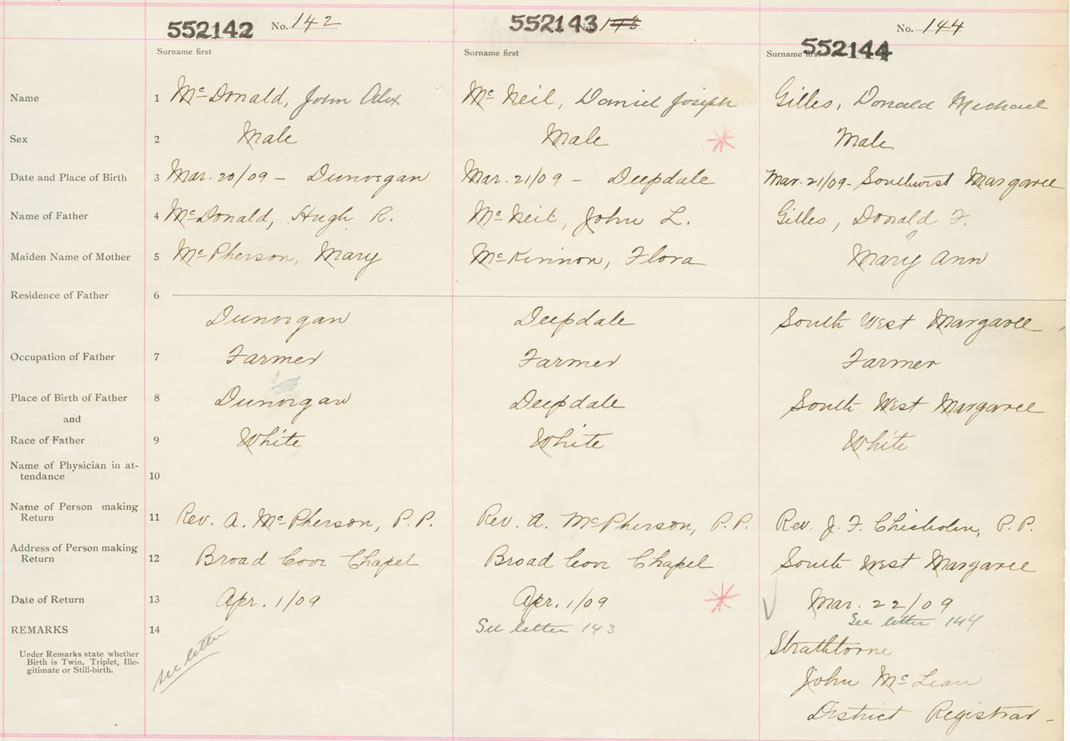 552142 No. 142 552143 143 No. 144
Surname first Surname first Surname first 552144
Name 1 McDonald, John Alex McNeil, Daniel Joseph Gilles, Donald Michael
Sex 2 Male Male Male
Date and Place of Birth 3 Mar. 20/09 - Dunvegan Mar. 21/09 - Deepdale Mar. 21/09 - Southwest Margaree
Name of Father 4 McDonald, Hugh R. McNeil, John L. Gilles, Donald F.
Maiden Name of Mother 5 McPherson, Mary McKinnon, Flora Mary Ann
Residence of Father 6
Dunvegan Deepdale South West Margaree
Occupation of Father 7 Farmer Farmer Farmer
Place of Birth of Father 8 Dunvegan Deepdale South West Margaree
and
Race of Father 9 White White White
Name of Physician in at-
tendance 10
Name of Person making
Return 11 Rev. A. McPherson, P.P. Rev. A. McPherson, P.P. Rev. J. F. Chisholm, P.P.
Address of Person making
Return 12 Broad Cove Chapel Broad Cove Chapel South West Margaree
Date of Return 13 Apr. 1/09 Apr. 1/09 Mar. 22/09
REMARKS 14 see letter See letter 143 See letter 144
Under Remarks state whether
Birth is Twin, Triplet, Ille-
gitimate or Still-birth.
Strathlorne
John McLean
District Registrar -